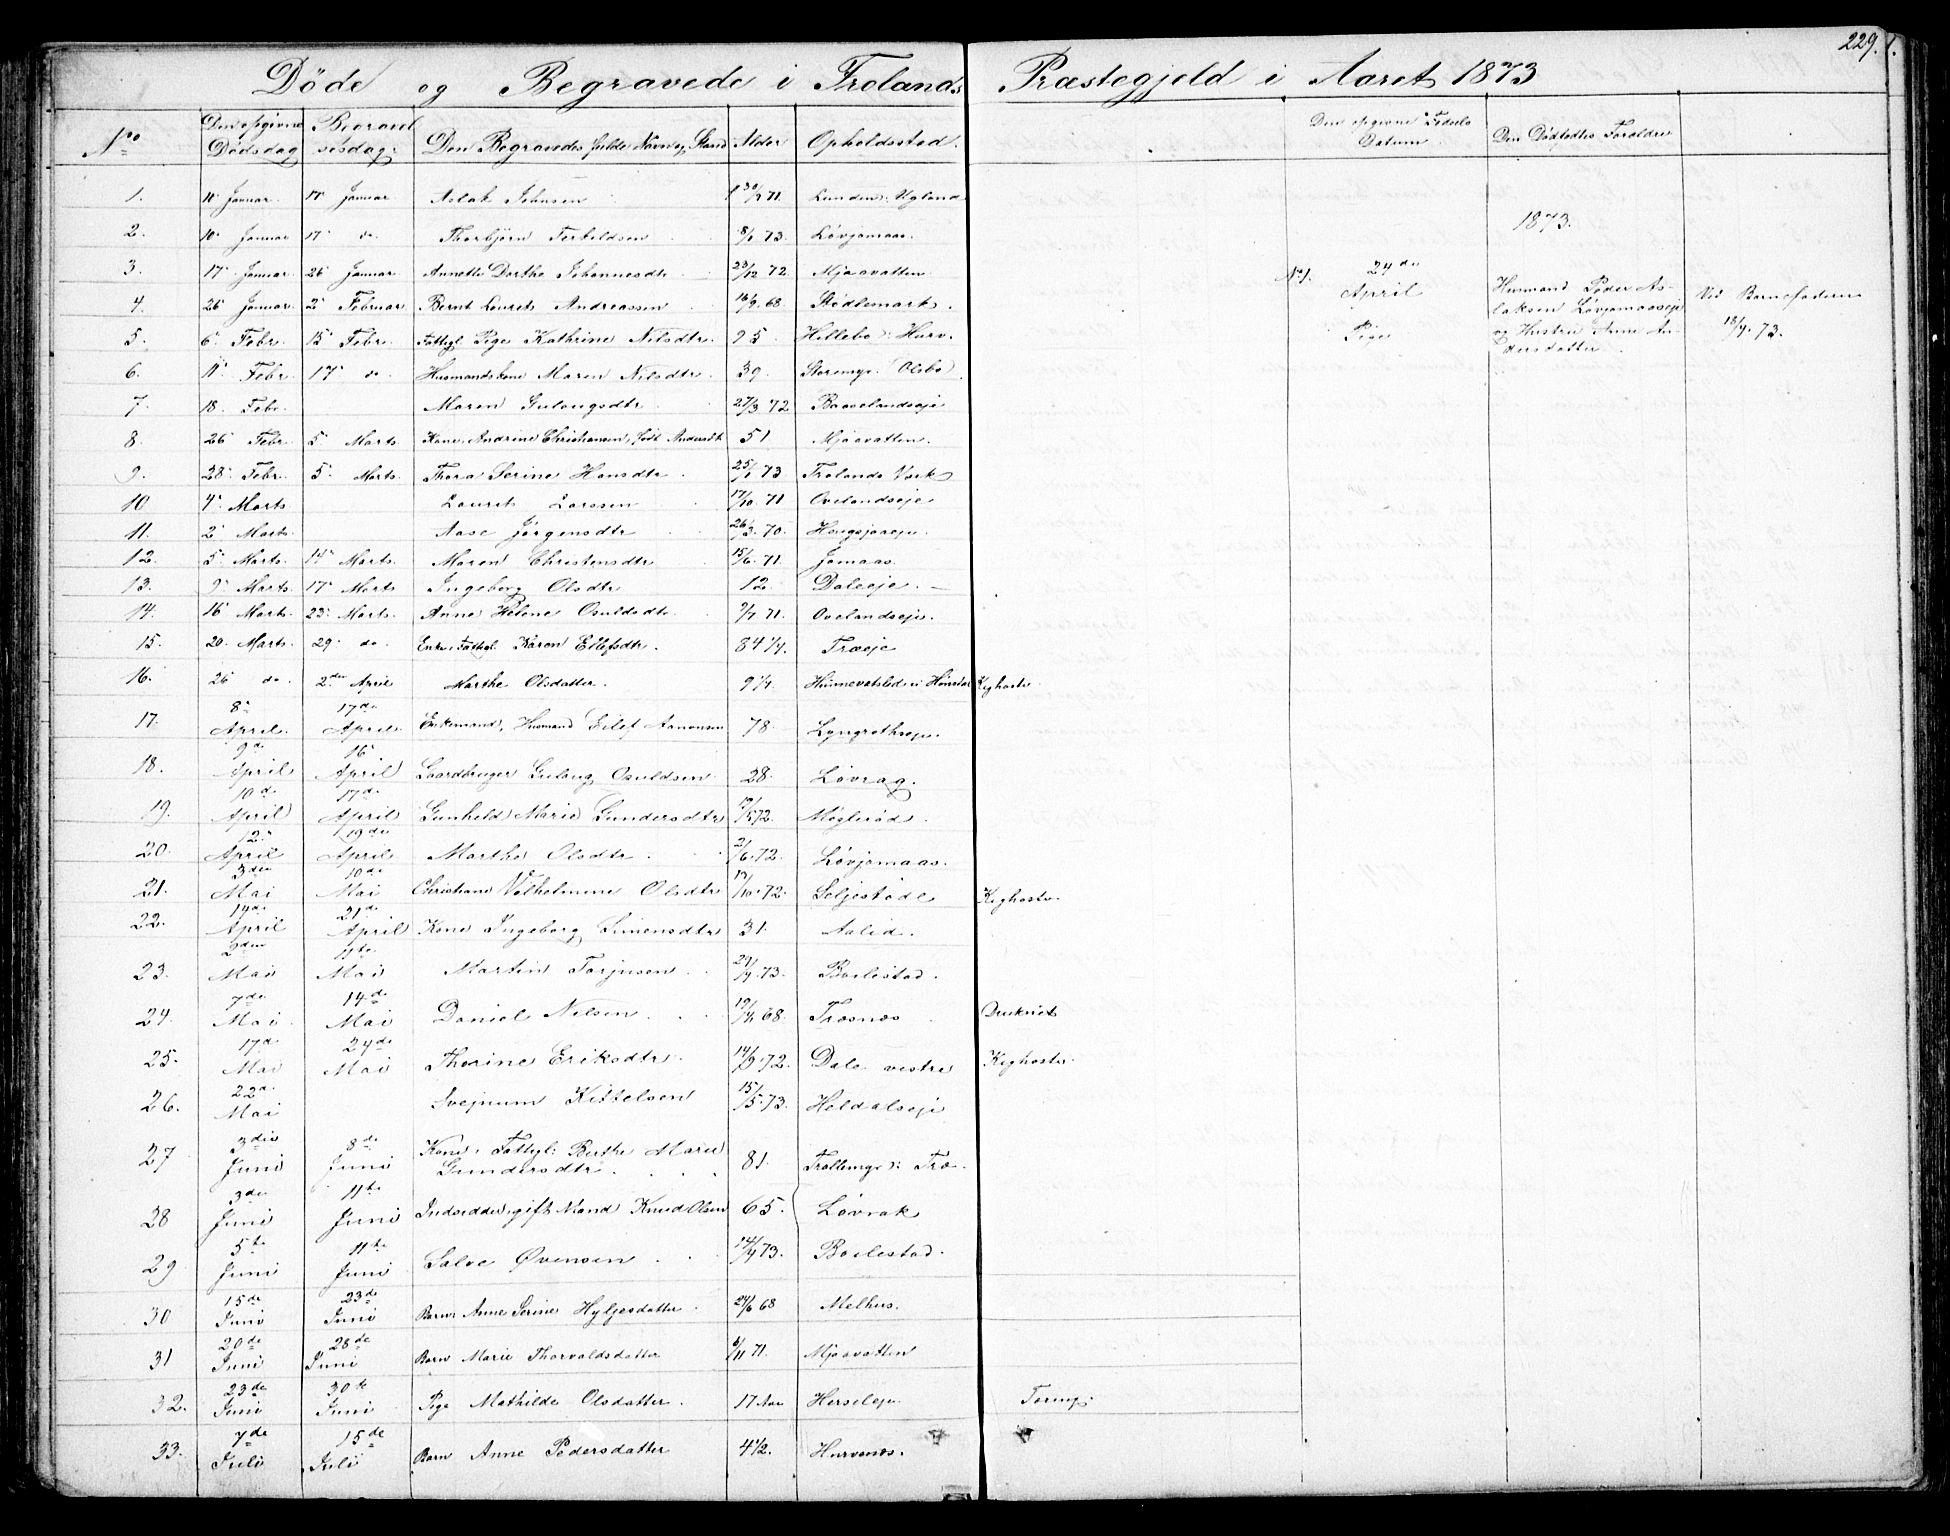 229.
Døde og Begravede i Frolands Præstegjeld i Aaret 1873
No Den opgivne Dødsdag Begravelsesdag. Den Begravedes fulde Navn og Stand Alder Opholdssted. Den opgivne Fødsels Datum Den Dødfødtes Forældre
1. 11 Januar 17 Januar Aslak Johnsen 71. Lunden: Ugland
2. 10 Januar 17 do Thorbjørn Terkeldsen 8/1 73. Løvjomaas.
3. 17 Januar 26 Januar Annette Dorthe Johannesdtr 23/12 72 Mjaavatten
4. 26 Januar 2 Februar Bernt Lourits Andreassen 16/9 68. Stødlemark.
5. 6 Febr. 15 Febr. Fattigl. Pige Kathrine Nilsdtr. 95 Hellebo: Hurv.
6. 11 Febr. 17 do Husmandskone Maren Nilsdtr. 39. Storemyr (Olsbo)
7. 18. Febr. Maren Gulougsdtr 27/3 72 Baavelandseje
8. 26 Febr. 5 Marts Kone Andrine Christiansen, født Andersdtr 51 Mjaavatten.
9. 28 Febr. 5 Marts. Thora Serine Hansdtr 25/1 73 Frolands Værk
10 4 Marts Lourits Larssen 17/10 71 Ovelandseje
11. 2 Marts. Aase Jørgensdtr 26/3 70. Hougsjaaeje.
12. 5 Marts. 14 Marts. Maren Christensdtr 15/6 71. Jomaas.
13. 9 Marts. 17 Marts Ingeborg Olsdtr 12. Daleeje.
14. 16 Marts. 23 Marts. Anne Helene Osuldsdtr. 71. Ovelandseje.
15. 20. Marts. 29 do. Enke, Fattigl. Karen Ellefsdtr. 84 1/4. Træeje
16. 26 do. 2den April Marthe Olsdatter. 9 1/4. Kighoste.
17. 8de April. 17de April. Enkemand, Husmand Eilef Aanonsen 78. Lyngrothseje.
18. 9de April 16 April Gaardbruger Guloug Osuldsen 28. Løvrag.
19. 10de April 17de April Gunheld Marie Gundersdtr 72. Møglerød.
20. 12 April 19de April Marthe Olsdtr 2/6 72. Løvjomaas.
21. 3die Mai 10de Mai Christiane Vilhelmine Olsdtr 72. Seljestøde Kighoste.
22. 14de April 21de April Kone Ingeborg Simensdtr 31. Aalid.
23. 2den Mai 11te Mai Martin Torjusen 73. Boilestad.
24. 7de Mai 14de Mai Daniel Nilsen 68. Træsnæs Druknet
25. 17de Mai 24de Mai Thorine Eriksdtr. 14/9 72. Dale vestre Kighoste.
26. 22de Mai Svejnum Kittelsen 15/5. 73. Heldalseje
27 3die Juni 8de Juni Kone, Fattigl: Berthe Marie Gundersdtr. 81. Trollemyr: Træ.
28 3die Juni 11te Juni Inderst, gift Mand Knud Olsen 65. Løvrak
29 5te Juni 11te Juni Salve Øvensen 73. Boilestad.
30 15de Juni 23de Juni Barn Anne Serine Hyljesdatter 68 Melhus.
31 20de Juni 28de Juni Barn Marie Thorvaldsdatter 71. Mjaavatten
32. 23de Juni 30te Juni Pige Mathilde Olsdatter. 17 Aar Herseleje. Tæring.
33. 7de Juli 15de Juli Barn Anne Pedersdatter 4 1/2. Hurvenæs.
1873.
No 1. 24de April Pige
Husmand Peder As-
laksen Løvjomaaseje
og Hustru Anne An-
dersdatter
Ved Barnefaderen
73.